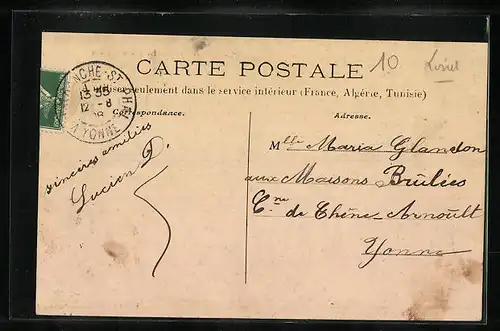 10 Loriel
CARTE POSTALE
à utiliser seulement dans le service intérieur (France, Algérie, Tunisie)
Correspondance.
Adresse.
13 35
12 - 8
YONNE
sincères amitiés
Lucien D.
Mlle Maria Glandon
aux Maisons Brûlées
Cne de Chêne Arnoult
Yonne